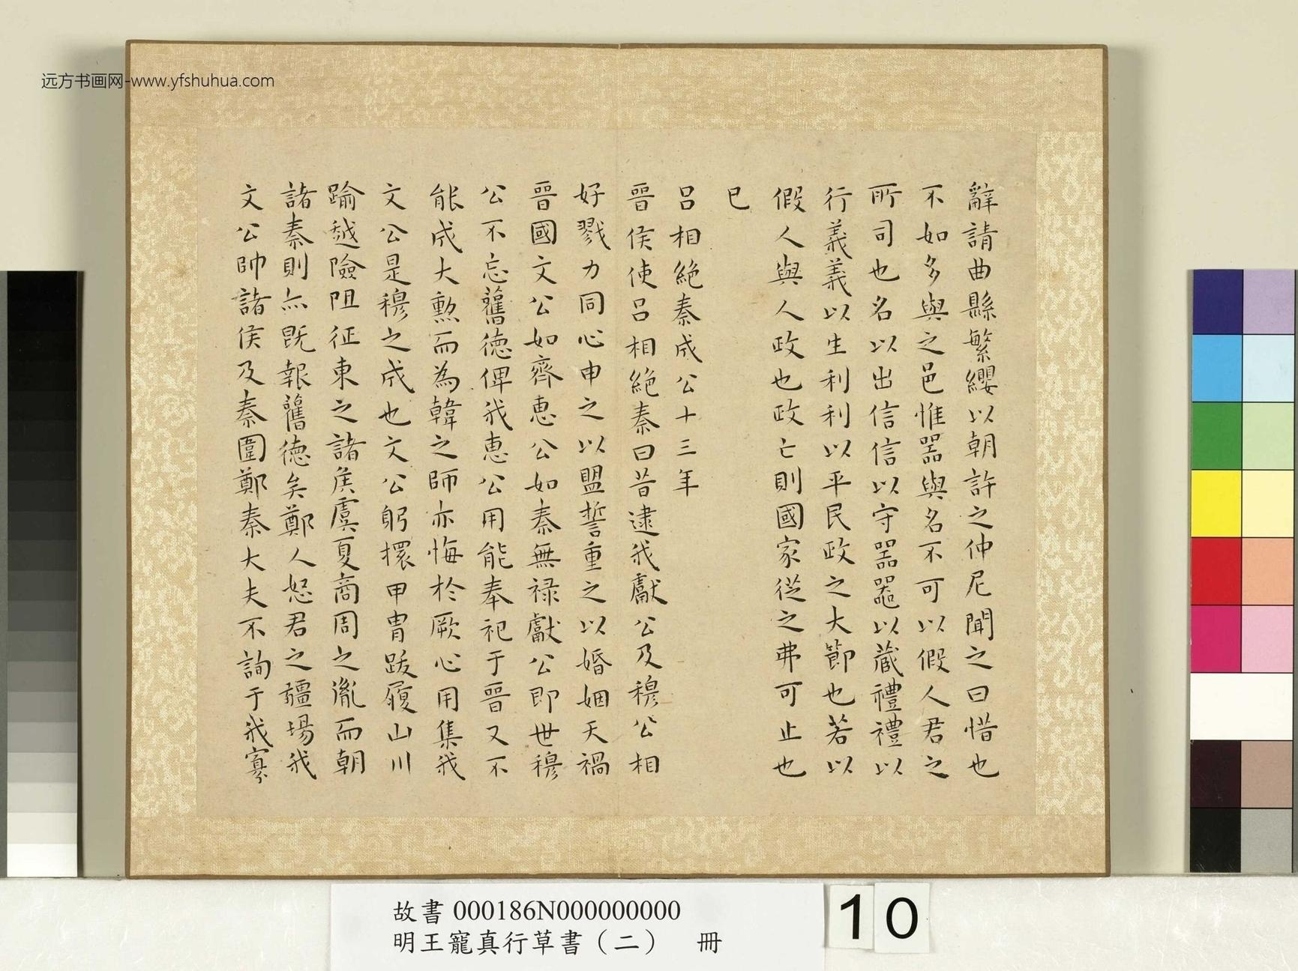 远方书画网-www.yfshuhua.com
辭請曲縣繁纓以朝許之仲尼聞之曰惜也
不如多與之邑惟器與名不可以假人君之
所司也名以出信信以守器器以蔵禮禮以
行義義以生利利以平民政之大節也若以
假人與人政也政亡則國家從之弗可止也
已
吕相絕秦成公十三年
晉侯使吕相絕秦曰昔逮我獻公及穆公相
好戮力同心申之以盟誓重之以婚姻天禍
晉國文公如齊惠公如秦無禄獻公即世穆
公不忘舊德俾我惠公用能奉祀于晉又不
能成大勲而為韓之師亦悔於厥心用集我
文公是穆之成也文公躬擐甲胄跋履山川
踰越險阻征東之諸矦虞夏商周之胤而朝
諸秦則亦既報舊德矣鄭人怒君之疆埸我
文公帥諸侯及秦圍鄭秦大夫不詢于我寡
故書 000186N000000000
明王寵真行草書（二） 冊
10